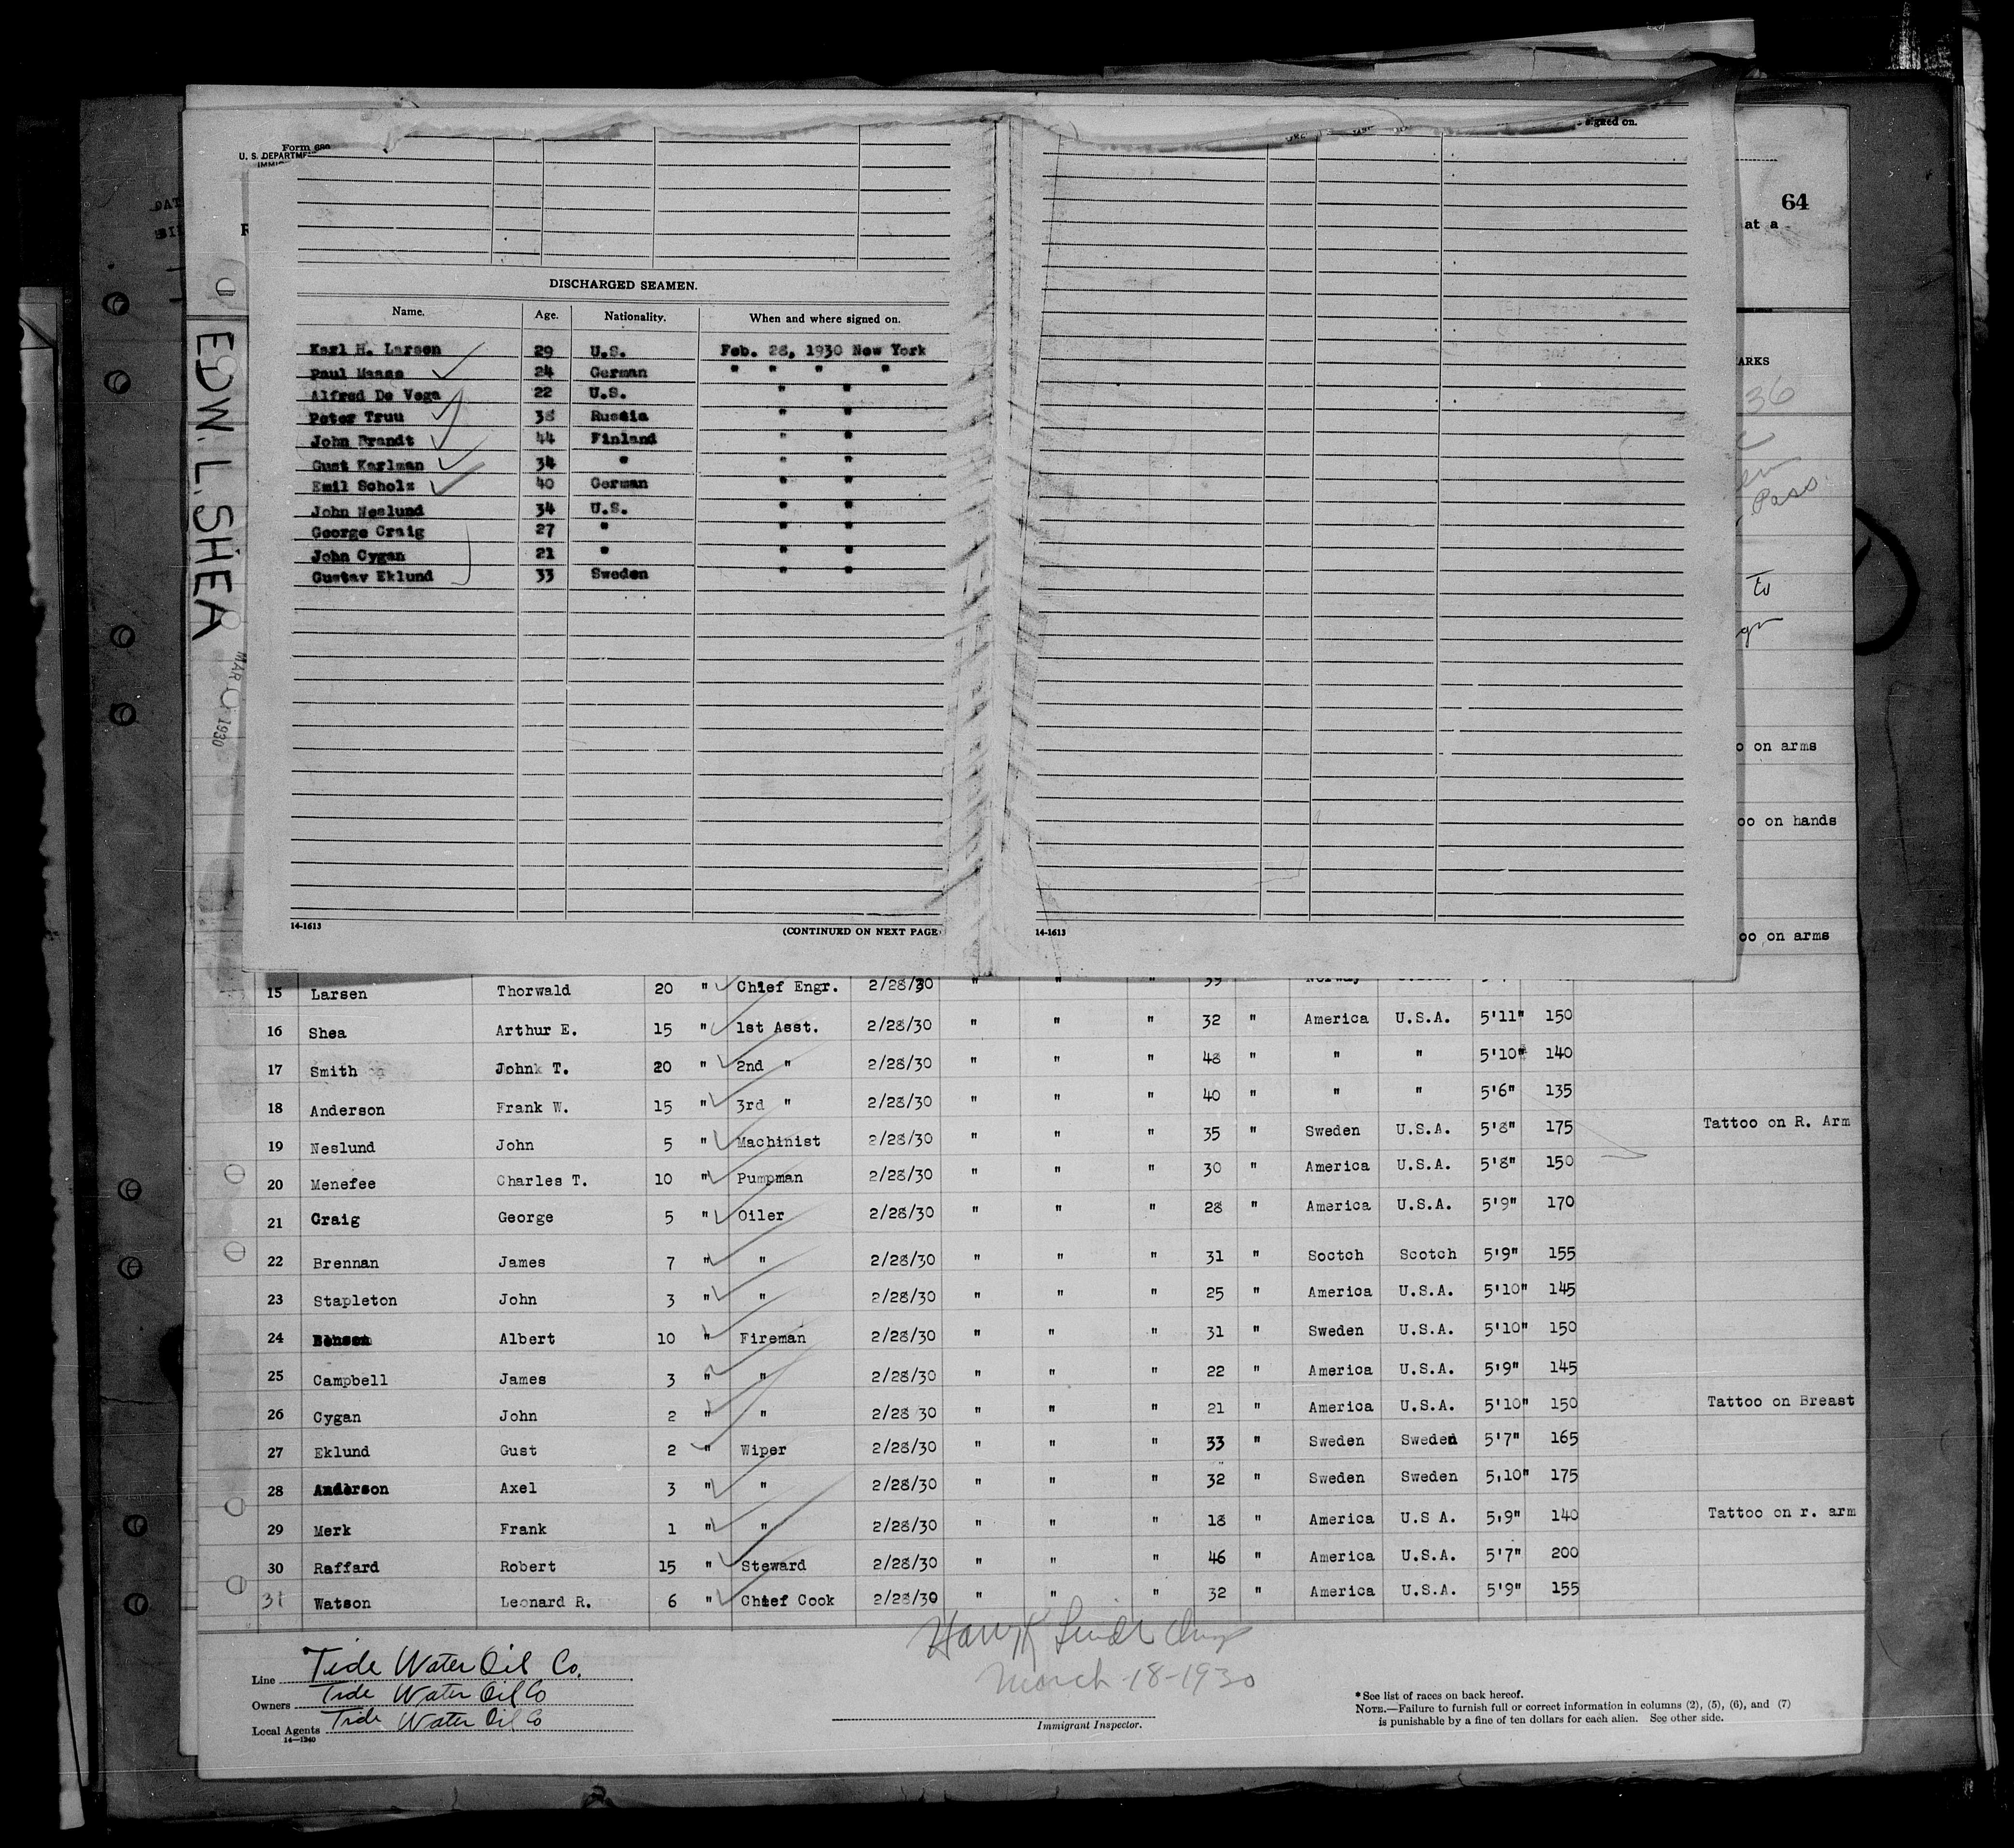 Form 680
U. S. DEPARTME
signed on.
64
at a
DISCHARGED SEAMEN.
Name. Age. Nationality. When and where signed on.
Karl H. Larsen 29 U.S. Feb. 28, 1930 New York
Paul Maass 24 German " " " "
Alfred De Vega 22 U.S. " "
Peter Truu 38 Russia " "
John Brandt 44 Finland " "
Gust Karlman 34 " " "
Emil Scholz 40 German " "
John Neslund 34 U.S. " "
George Craig 27 " " "
John Cygan 21 " " "
Gustav Eklund 33 Sweden " "
14-1613 (CONTINUED ON NEXT PAGE
14-1613
EDW. L. SHEA
MAR 1930
ARKS
36
Pass
to
o on arms
oo on hands
oo on arms
15 Larsen Thorwald 20 " Chief Engr. 2/28/30 " " " 39 Norway
16 Shea Arthur E. 15 " 1st Asst. 2/28/30 " " " 32 " America U.S.A. 5'11" 150
17 Smith John T. 20 " 2nd " 2/28/30 " " " 48 " " " 5'10" 140
18 Anderson Frank W. 15 " 3rd " 2/28/30 " " " 40 " " " 5'6" 135
19 Neslund John 5 " Machinist 2/28/30 " " " 35 " Sweden U.S.A. 5'8" 175 Tattoo on R. Arm
20 Menefee Charles T. 10 " Pumpman 2/28/30 " " " 30 " America U.S.A. 5'8" 150
21 Craig George 5 " Oiler 2/28/30 " " " 28 " America U.S.A. 5'9" 170
22 Brennan James 7 " " 2/28/30 " " " 31 " Soctch Scotch 5'9" 155
23 Stapleton John 3 " " 2/28/30 " " " 25 " America U.S.A. 5'10" 145
24 Albert 10 " Fireman 2/28/30 " " " 31 " Sweden U.S.A. 5'10" 150
25 Campbell James 3 " " 2/28/30 " " " 22 " America U.S.A. 5'9" 145
26 Cygan John 2 " " 2/28 30 " " " 21 " America U.S.A. 5'10" 150 Tattoo on Breast
27 Eklund Gust 2 " Wiper 2/28/30 " " " 33 " Sweden Sweden 5'7" 165
28 Anderson Axel 3 " " 2/28/30 " " " 32 " Sweden Sweden 5,10" 175
29 Merk Frank 1 " " 2/28/30 " " " 18 " America U.S A. 5,9" 140 Tattoo on r. arm
30 Raffard Robert 15 " Steward 2/28/30 " " " 46 " America U.S.A. 5'7" 200
31 Watson Leonard R. 6 " Chief Cook 2/28/30 " " " 32 " America U.S.A. 5'9" 155
March-18-1930
Line Tide Water Oil Co.
Owners Tide Water Oil Co
Local Agents Tide Water Oil Co
14—1240
Immigrant Inspector.
*See list of races on back hereof.
NOTE.—Failure to furnish full or correct information in columns (2), (5), (6), and (7)
is punishable by a fine of ten dollars for each alien. See other side.